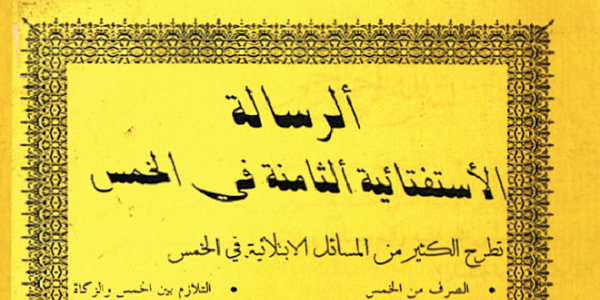 ألرسالة
الأستفتائية ألثامنة في الخمس
تطرح الكثير من المسائل الابتلائية في الخمس
• الصرف من الخمس • التلازم بين الخمس والزكاة